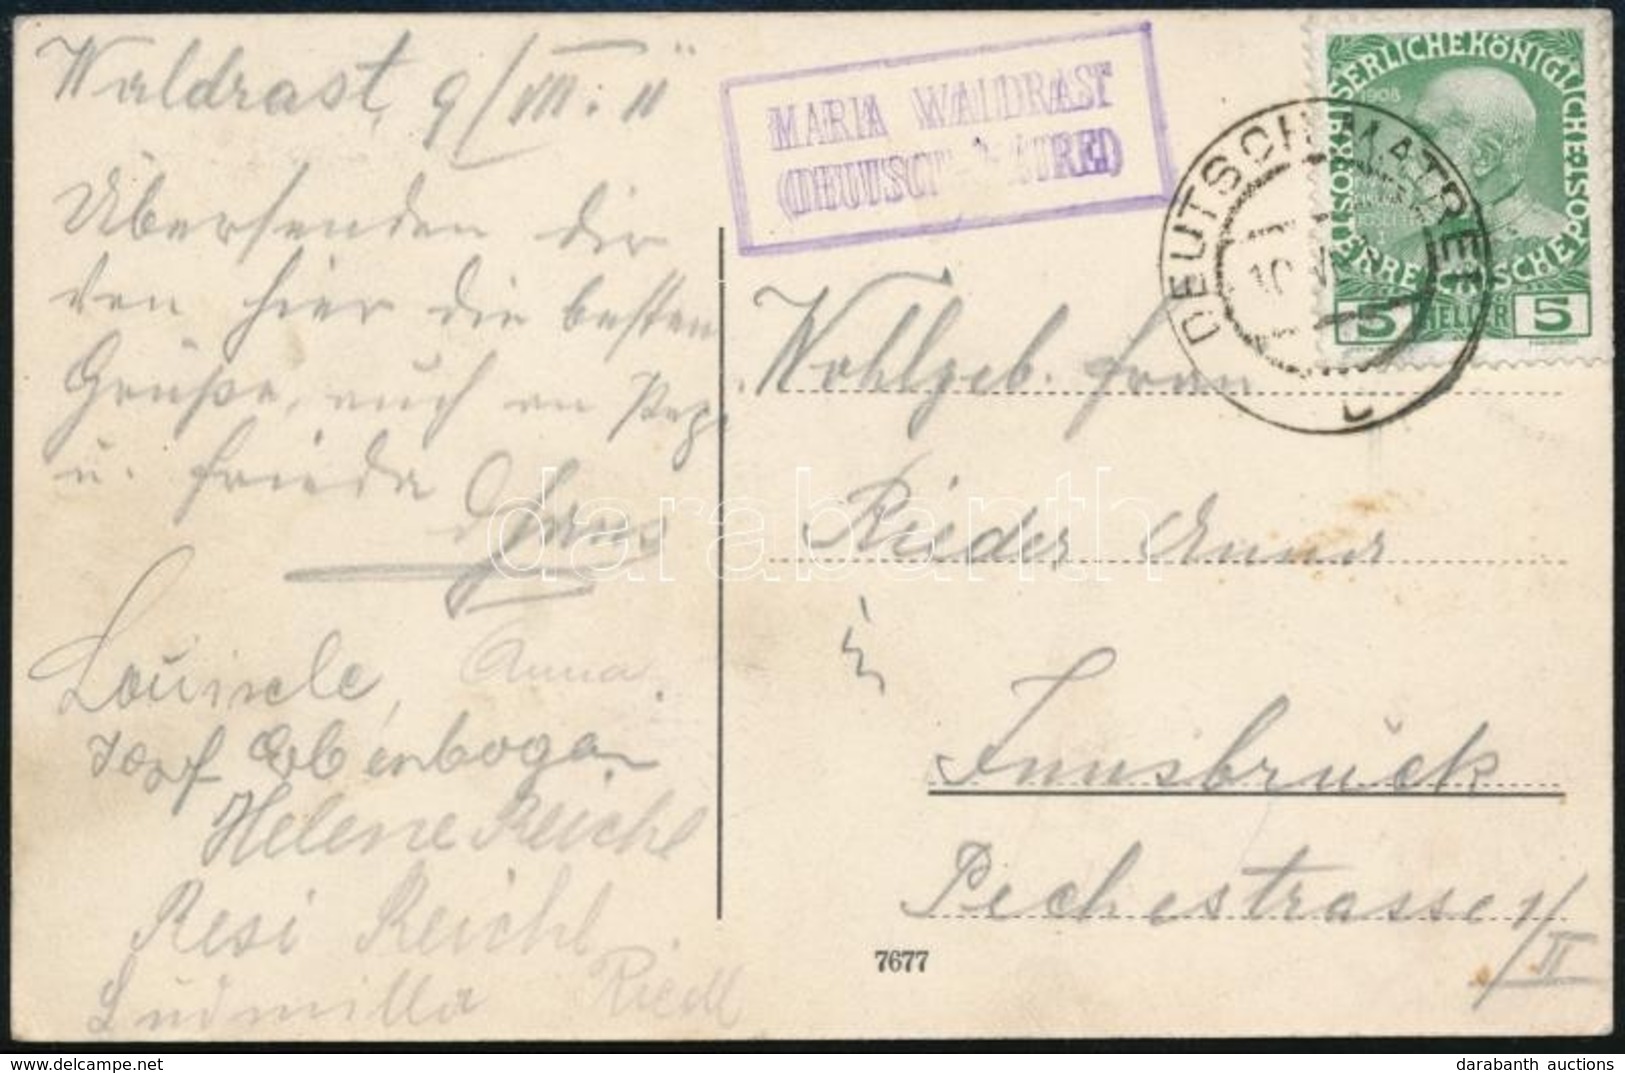 Waldrast, 9/VIII. 11
Übersenden dir
den hier die besten
Grüße, auch an Pepi
u. Frieda
Hans
Anna.
Louisele,
Josef Elbenbogen
Helene Reichl
Resi Reichl
Ludmilla Riedl
MARIA WALDRAST
(DEUTSCH MATREI)
DEUTSCH-MATREI
KAISERLICHE KÖNIGLICHE ÖSTERREICHISCHE POST
1908
5 HELLER 5
Wohlgeb. Frau
Rieder Anna
in
Innsbrück
Pechestrasse 1/II
7677
darabanth
darabanth auctions